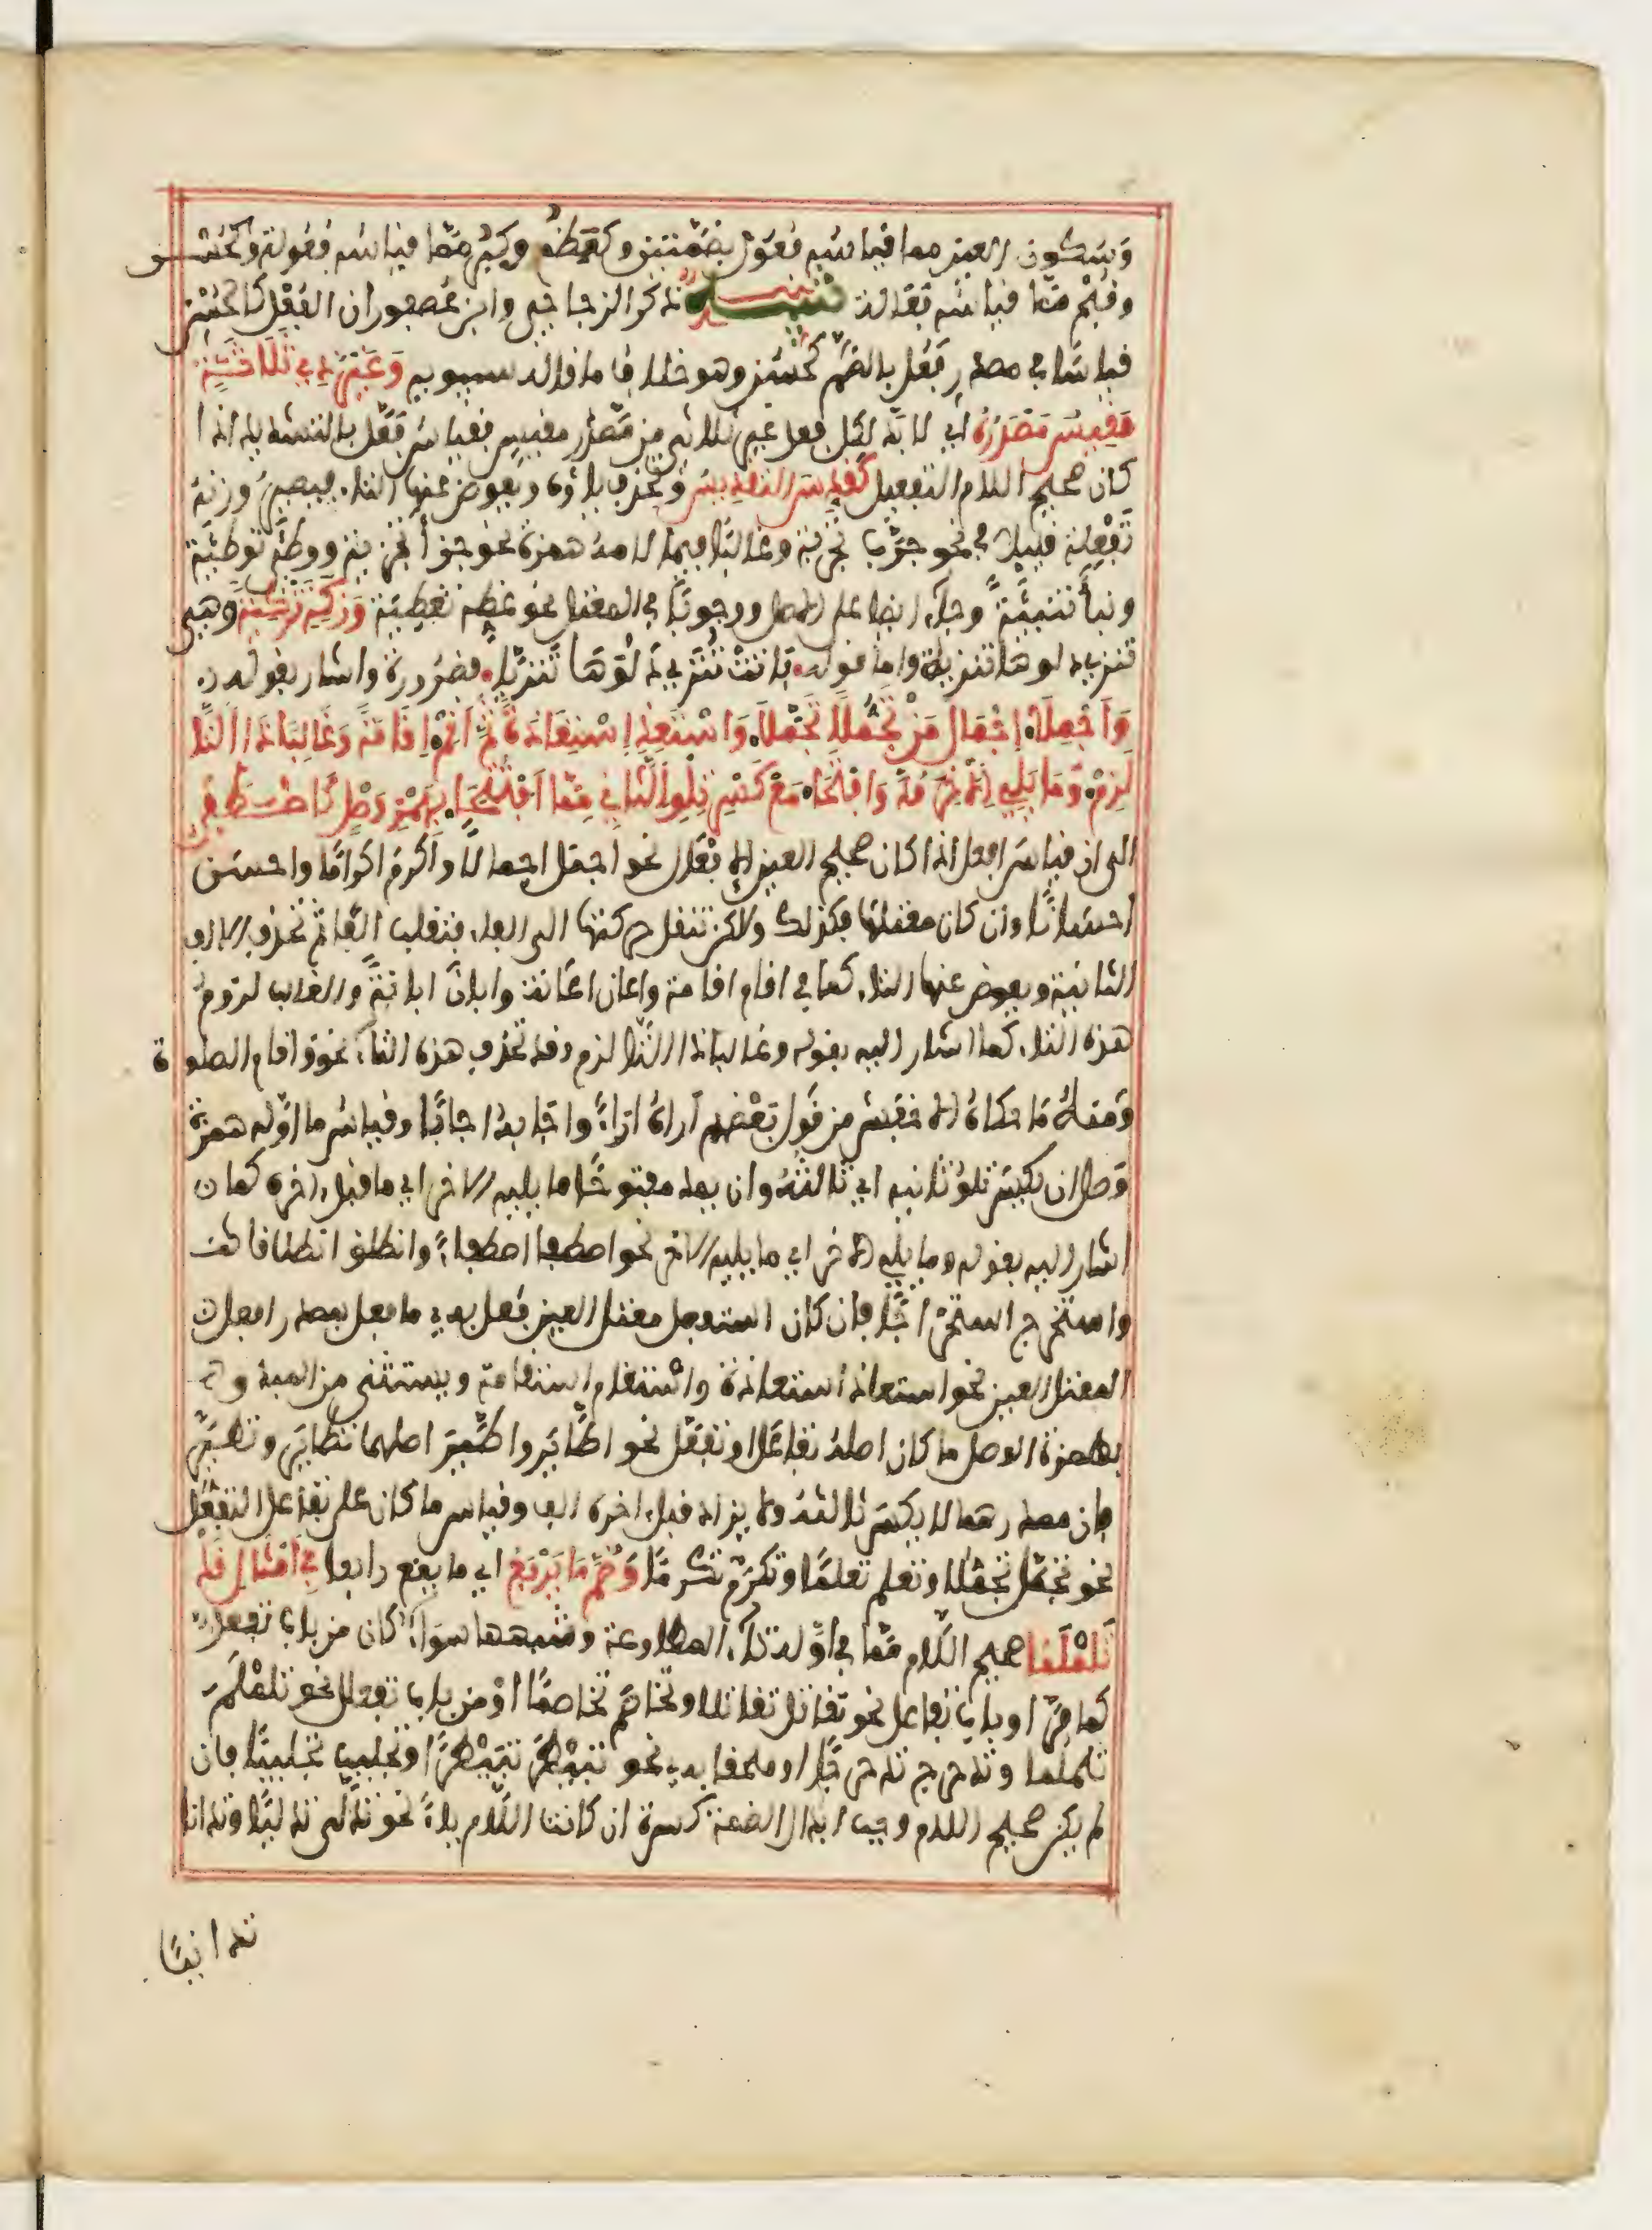 وسكون العين مما قياسه فعول بضمتين وكعظم وكبر مما قياسه فعولة وكحسن
وقبح مما قياسه فعالة تنبيه ذكر الزجاجي وابن عصفور ان الفعل كالحسن
قياسا في مصدر فعل بالضم كحسن وهو خلاف ما قاله سيبويه وَغَيْرُ ذِي ثَلَاثَةٍ
مَقِيسُ مَصْدَرُهُ اي لا بد لكل فعل غير ثلاثي من مصدر مقيس فقياس فعّل بالتشديد اذا
كان صحيح اللام التفعيل كَقُدِّسَ التَّقْدِيسُ وتحذف ياؤه ويعوض عنها التاء فيصير وزنه
تَفْعِلة قليلا في نحو جرّب تجربة وغالبا فيما لامه همزة نحو جزأ تجزية ووطّأ توطئة
ونبأ تنبئة وجاء ايضا على الاصل ووجوبا في المعتل نحو غطّه تغطية وَزَكِّهِ تَزْكِيَةً وهي
تنزي دلوها تنزية واما قوله باتت تُنَزّي دَلْوَهَا تَنْزِيًّا فضرورة واشار بقوله
وَأَجْمِلَا إِجْمَالَ مَنْ تَجَمُّلًا تَجَمَّلَا وَاسْتَعِذِ اسْتِعَاذَةً ثُمَّ أَقِمْ إِقَامَةً وَغَالِبًا ذَا التَّا
لَزِمْ وَمَا يَلِي الْآخِرَ مُدَّ وَافْتَحَا مَعْ كَسْرِ تِلْوِ الثَّانِي مِمَّا افْتُتِحَا بِهَمْزِ وَصْلٍ كَاصْطَفَى
الى ان قياس افعل اذا كان صحيح العين الافعال نحو اجمل اجمالا واكرم اكراما واحسن
احسانا وان كان معتلها فكذلك ولاكن تنقل حركتها الى الفاء فتقلب الفا ثم تحذف الالف
الثانية ويعوض عنها التاء كما في اقام اقامة واعان اعانة وابان ابانة والغالب لزوم
هذه التاء كما اشار اليه بقوله وغالبا ذا التا لزم وقد تحذف هذه التاء نحو واقام الصلوة
ومنه ما حكاه الاخفش من قول بعضهم اراه اراءً واجابه اجابًا وقياس ما اوله همزة
وصل ان يكسر تلو ثانيه اي ثالثه وان يمد مفتوحا ما يليه الاخر اي ما قبل اخره كما
اشار اليه بقوله وما يلي الاخر اي ما يليه الاخر نحو اصطفى اصطفاءً وانطلق انطلاقا
واستخرج استخراجًا فان كان استفعل معتل العين فعل به ما فعل بمصدر افعل
المعتل العين نحو استعاذ استعاذة واستقام استقامة ويستثنى من المبدوء
بهمزة الوصل ما كان اصله تفاعل او تفعّل نحو اطّاير واطّير اصلهما تطاير وتطيّر
فان مصدرهما لا يكسر ثالثه ولا يزاد قبل اخره الف وقياس ما كان على تفعّل التفعُّل
نحو تجمّل تجمّلا وتعلم تعلّمًا وتكرّم تكرمًا وَضُمَّ مَا يَرْبَعُ اي ما يقع رابعا فِي أَمْثَالِ قَدْ
تَلَمْلَمَا صحيح اللام مما في اوله تاء المطاوعة وشبهها سواءً كان من باب تفعّل
كما مرّ او باب تفاعل نحو تقاتل تقاتلا وتخاصم تخاصمًا او من باب تفعلل نحو تلملم
تلملما وتدحرج تدحرجًا او ملحقا به نحو تبيطر تبيطرًا وتجلبب تجلببًا فان
لم يكن صحيح اللام وجب ابدال الضمة كسرة ان كانت اللام ياءً نحو تدلّى تدليًا وتدانا
تدانيًا